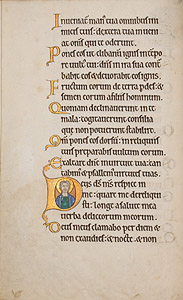 Inueniat man' tua omnibus ini
micis tuis: dextera tua inueni
at om̄s qui te oderunt.
Pones eos ut clibanū ignis in tēpo
re uultus tui: dn̄s in ira sua contur
babit eos & deuorabit eos ignis.
Fructum eorum de terra pdes: &
semen eorum a filiis hominum.
Quoniam declinauerunt in te
mala: cogitauerunt consilia
que non potuerunt stabilire.
Qm̄ pones eos dorsū: in reliquiis
tuis preparabis uultum eorum.
Exaltare dn̄e in uirtute tua: can
tabim' & psallem' uirtutes tuas.
Deus ds̄ ms̄ respice in
me: quare me dereliqui
sti: longe a salute mea
uerba delictorum meorum.
Deus meus clamabo per diem &
non exaudies: & nocte & non